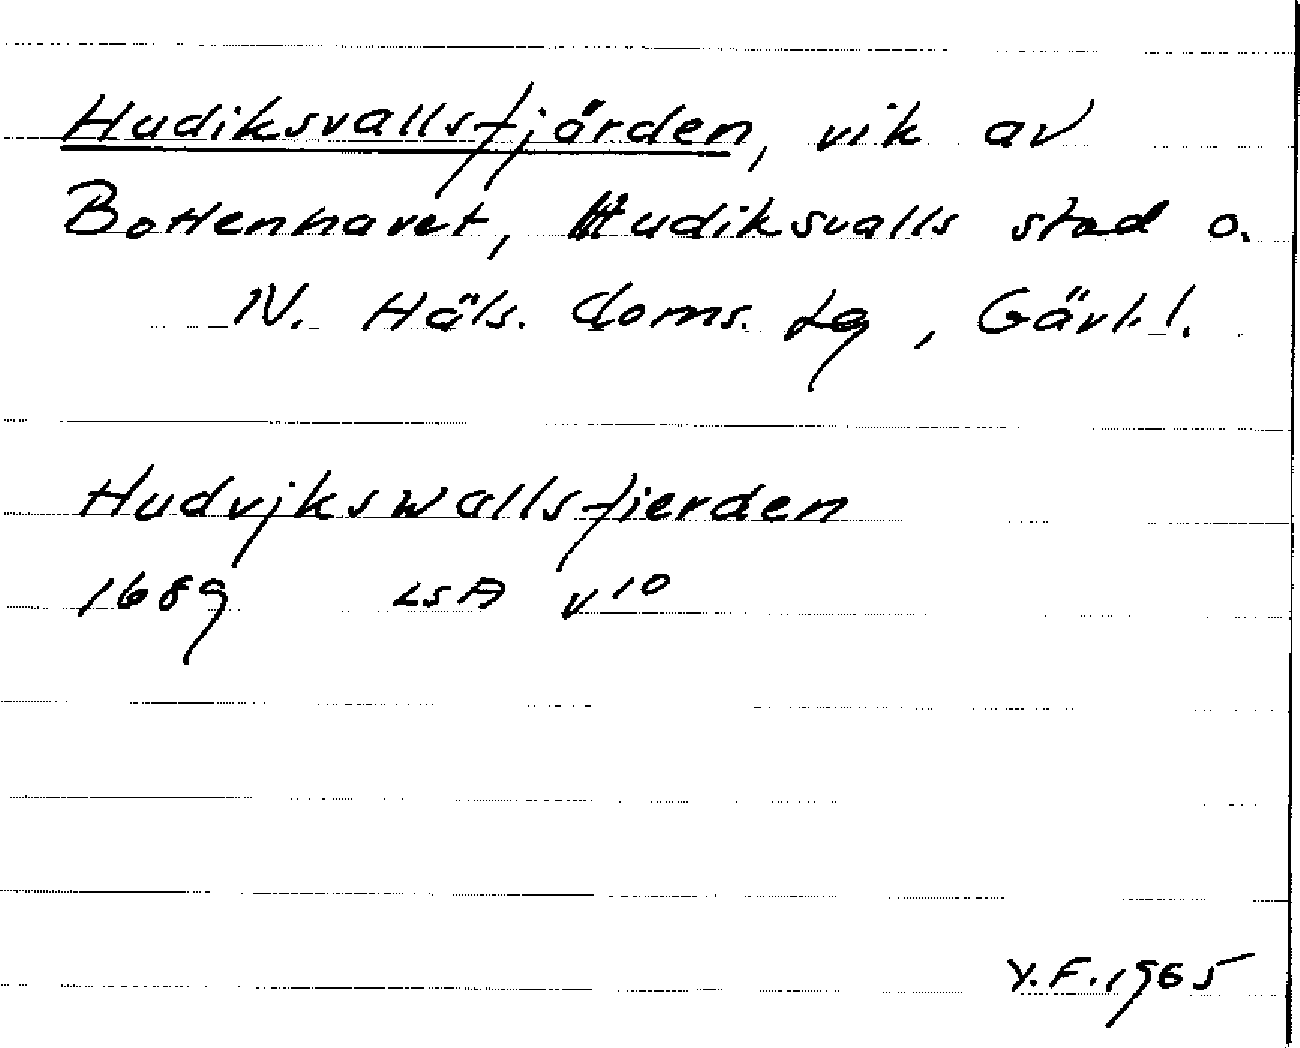 Hudiksvallsfjärden, vik av
Bottenhavet, Hudiksvalls stad o.
N. Häls. doms. tg, Gävl. l.
Hudvjkswallsfierden
1689 LSA v10
Y.F. 1965